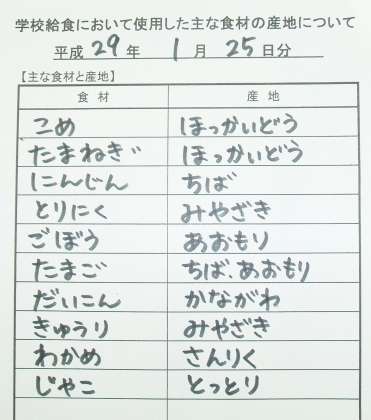 学校給食において使用した主な食材の産地について
平成 29 年 1 月 25 日分
【主な食材と産地】
食材 産地
こめ ほっかいどう
たまねぎ ほっかいどう
にんじん ちば
とりにく みやざき
ごぼう あおもり
たまご ちば、あおもり
だいこん かながわ
きゅうり みやざき
わかめ さんりく
じゃこ とっとり